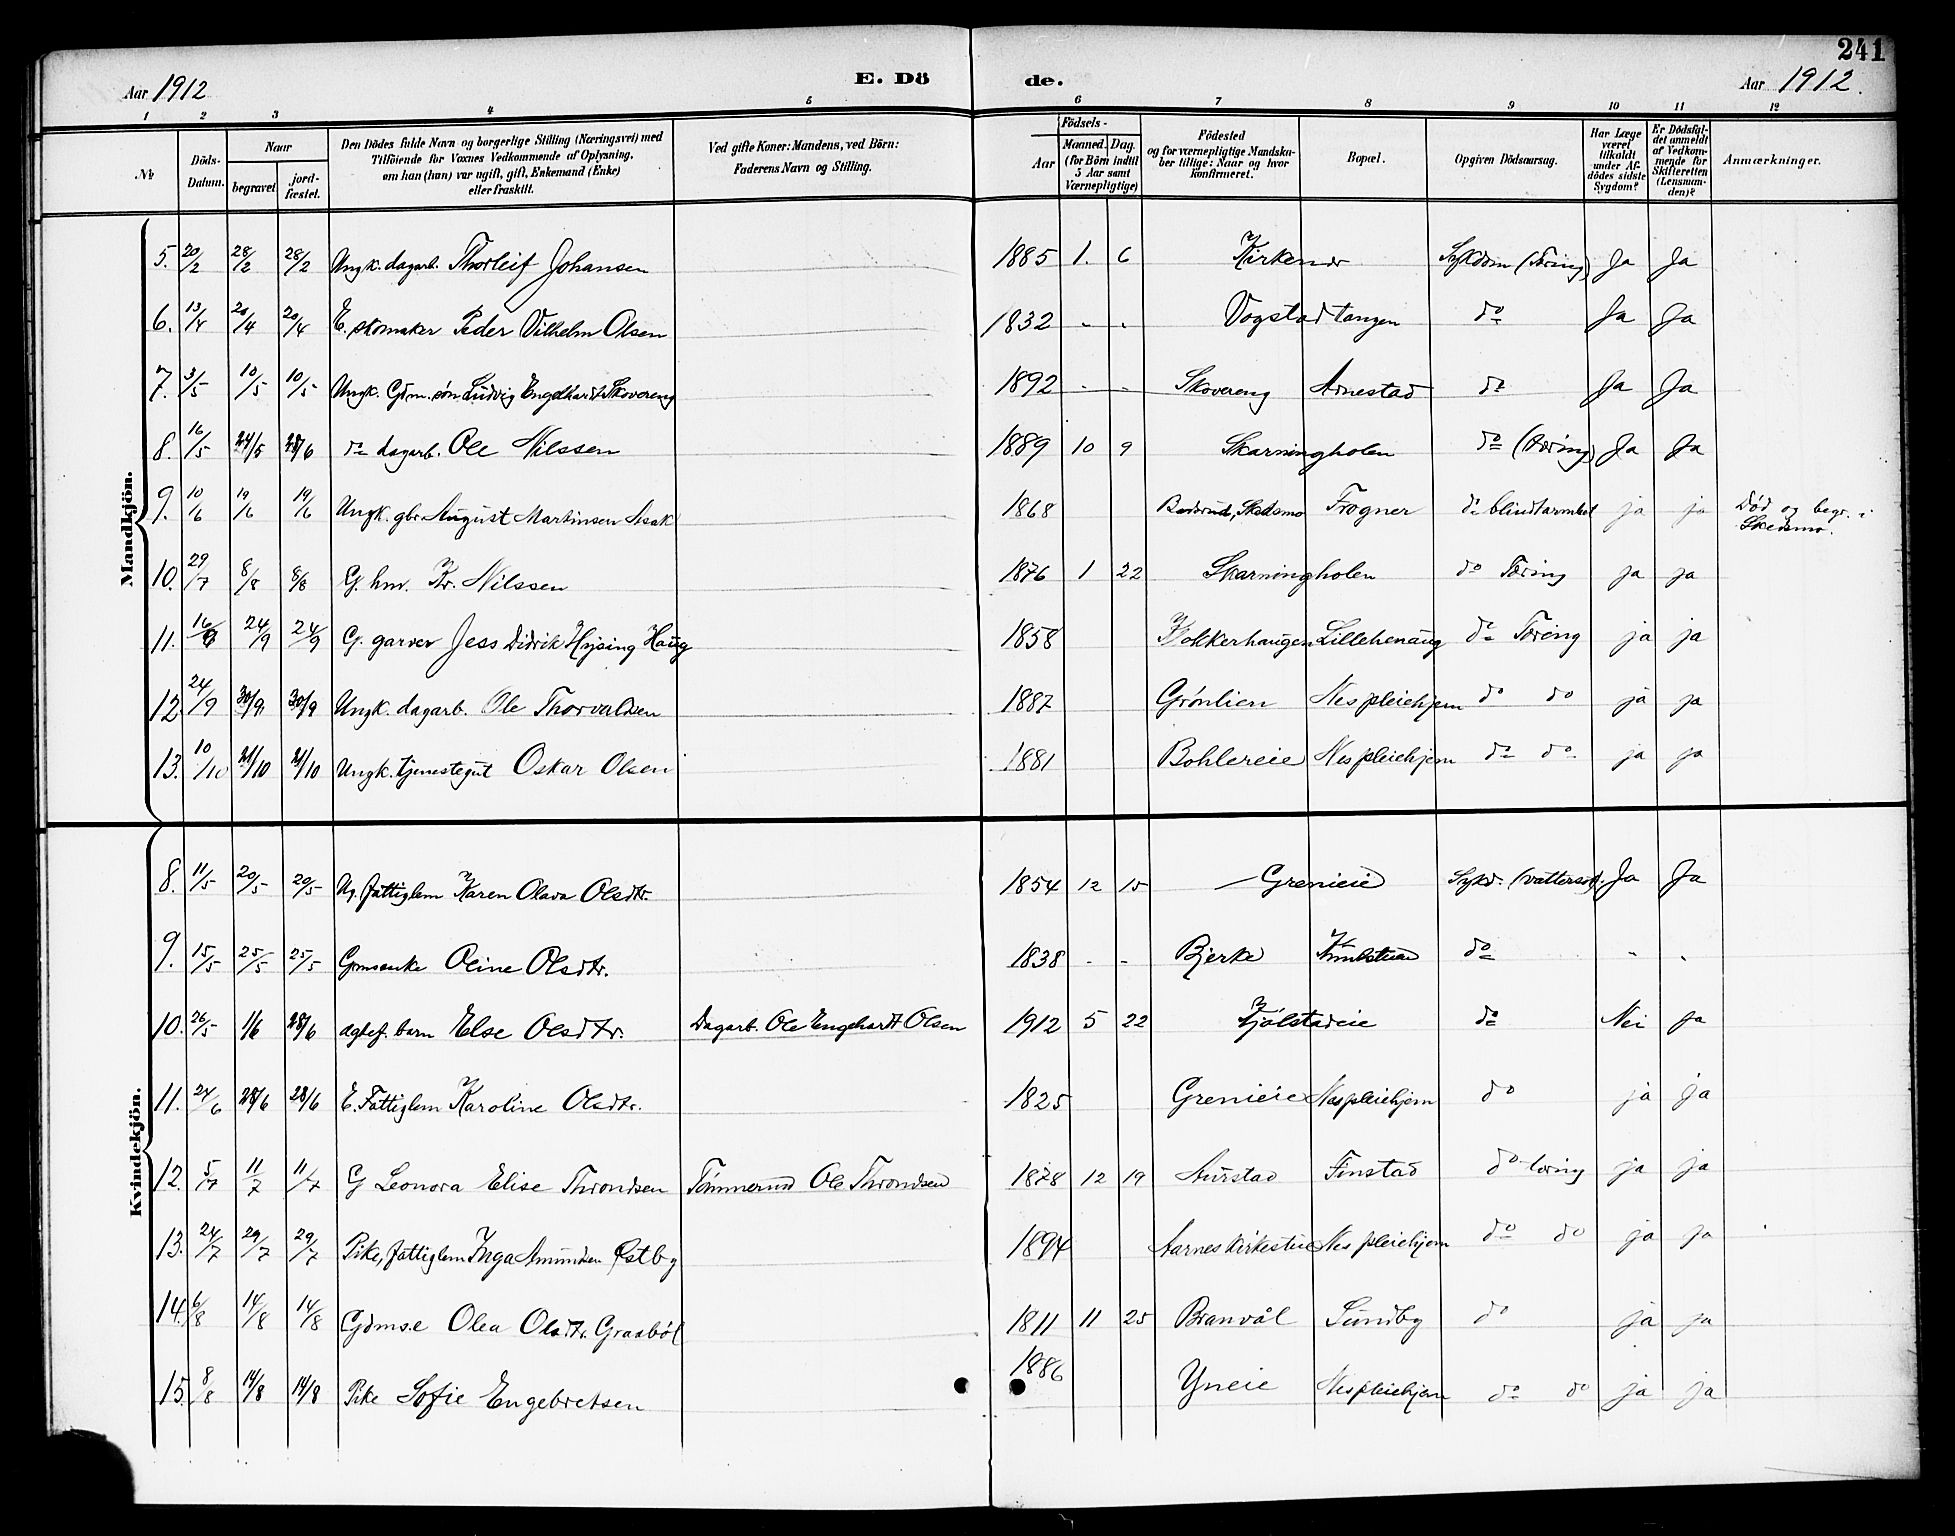 241
Aar 1912 E. Dö de. Aar 1912.
1 2 3 4 5 6 7 8 9 10 11 12
№ Döds-Datum. Naar begravet. jordfæstet. Den Dödes fulde Navn og borgerlige Stilling (Næringsvei) med Tilföiende for Voxnes Vedkommende af Oplysning, om han (hun) var ugift, gift, Enkemand (Enke) eller fraskilt. Ved gifte Koner: Mandens, ved Börn: Faderens Navn og Stilling. Födsels- Aar Maaned. Dag. (for Börn indtil 5 Aar samt Værnepligtige) Födested og for værnepligtige Mandskaber tillige: Naar og hvor konfirmeret. Bopæl. Opgiven Dödsaarsag. Har Læge været tilkaldt under Afdödes sidste Sygdom? Er Dödsfaldet anmeldt af Vedkommende for Skifteretten (Lensmanden)? Anmærkninger.
Mandkjön.
5. 20/2 28/2 28/2 Ungk. dagarb. Thorleif Johansen 1885 1. 6 Kirkenær Sykdom (Tæring) Ja Ja
6. 13/4 20/4 20/4 E. skomaker Peder Vilhelm Olsen 1832 - - Vogstadtangen do Ja Ja
7. 3/5 10/5 10/5 Ungk. Gdm. søn Ludvig Engelhardt Skovereng 1892 - - Skovereng Arnestad do Ja Ja
8. 16/5 24/5 28/6 do dagarb. Ole Nilssen 1889 10 9 Skarningholen do (tæring) Ja Ja
9. 10/6 19/6 19/6 Ungk. gbr. August Martinsen 1868 Skedsmo Frogner do blindtarmbet ja ja Død og begr. i Skedsmo.
10. 29/7 8/8 8/8 G. hm. Kr. Nilssen 1876 1 22 Skarningholen do Tæring ja ja
11. 16/9 24/9 24/9 G. garver Jess Didrik Hysing Haug 1858 Klokkerhaugen Lillehenaug do Tæring ja ja
12. 24/9 30/9 30/9 Ungk. dagarb. Ole Thorvaldsen 1887 Grønlien Nes pleiehjem do do ja ja
13. 10/10 21/10 21/10 Ungk. tjenestegut Oskar Olsen 1881 Bohlereie Nes pleiehjem do do ja ja
Kvindekjön.
8. 11/5 20/5 20/5 Ug. fattiglem Karen Olava Olsdtr. 1854 12 15 Grenieie Sykd. (vattersot). Ja Ja
9. 15/5 25/5 25/5 Gmsenke Oline Olsdtr. 1838 - - Bjerke do - -
10. 26/5 1/6 28/6 agtef. barn Else Olsdtr. Dagarb. Ole Engehardt Olsen 1912 5 22 Kjølstadeie do Nei ja
11. 24/6 28/6 28/6 E. Fattiglem Karoline Olsdtr. 1825 Grenieie Nes pleiehjem do ja ja
12. 5/7 11/7 11/7 G Leonora Elise Throndsen Tømmermd Ole Throndsen 1878 12 19 Aurstad Finstad do tæring ja ja
13. 24/7 29/7 29/7 Pike, fattiglem Inga Amundsen Østby 1894 Aarnes kirkestue Nes pleiehjem do do ja ja
14. 6/8 14/8 14/8 Gdms.e Olea Olsdtr. Graabøl 1811 11 25 Branvål Sundby do ja ja
15. 8/8 14/8 14/8 Pike Sofie Engebretsen 1886 Yneie Nes pleiehjem do do ja ja